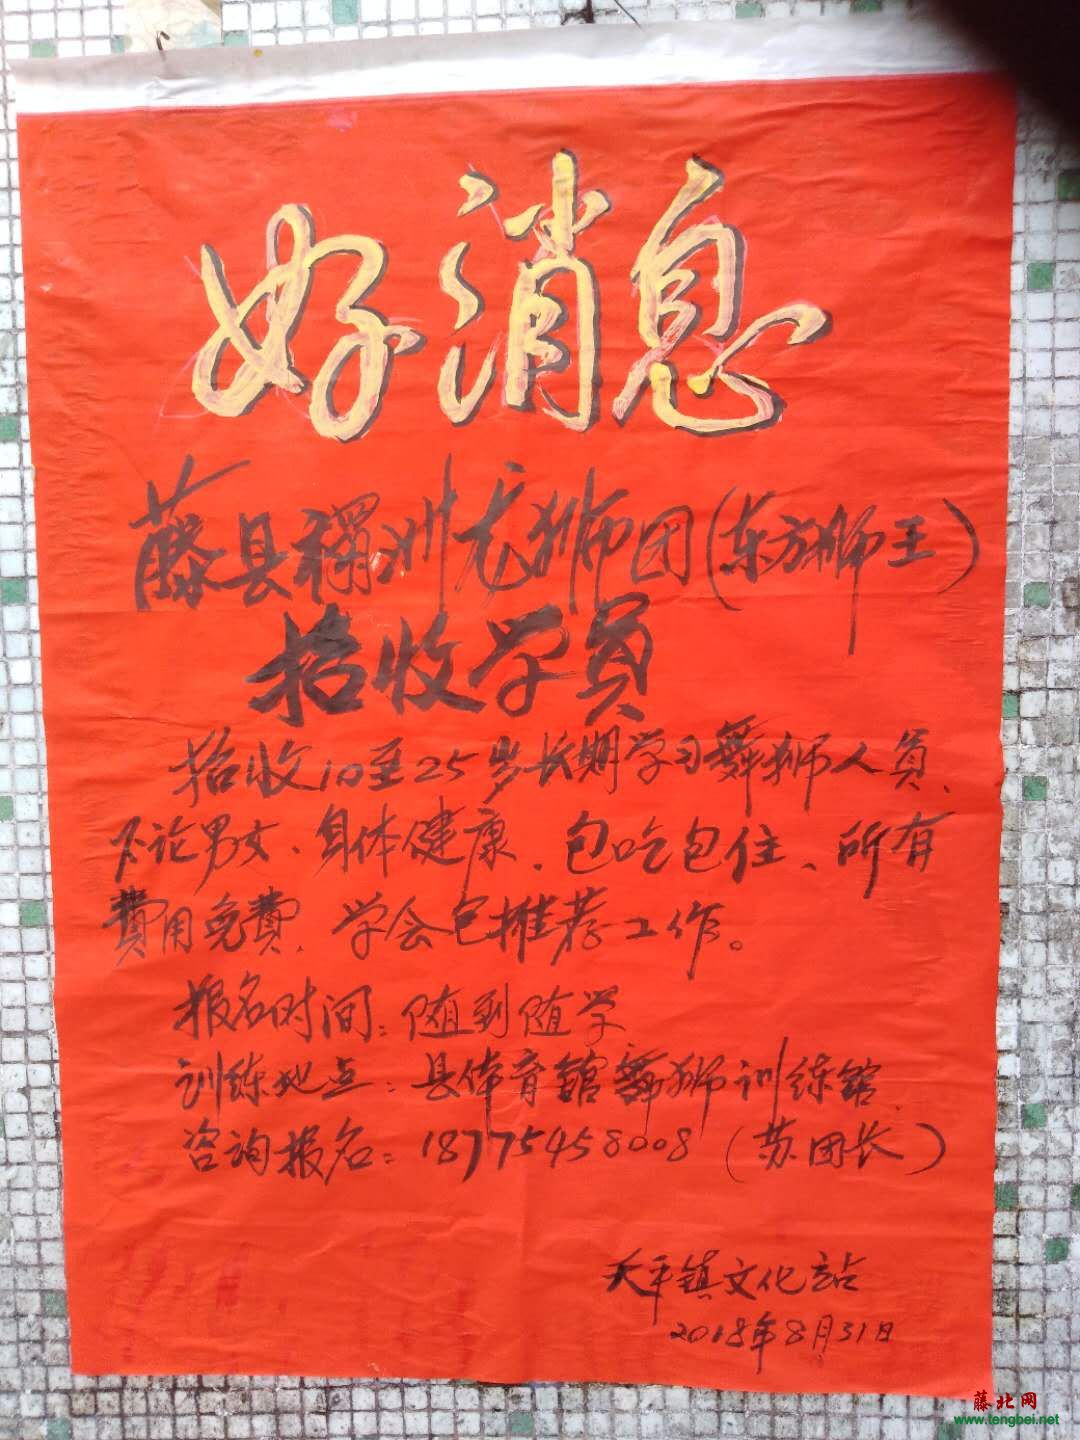 好消息
藤县禤洲龙狮团(东方狮王)
招收学员
招收10至25岁长期学习舞狮人员、
不论男女、身体健康、包吃包住、所有
费用免费、学会包推荐工作。
报名时间：随到随学
训练地点：县体育馆舞狮训练馆.
咨询报名：18775458008(苏团长)
天平镇文化站
2018年8月31日
藤北网
www.tengbei.net